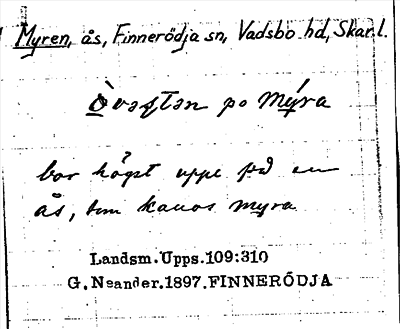 Myren, ås, Finnerödja sn, Vadsbo hd, Skar.l.
po mýra
bor högst uppe på en
ås, som kallas myra
Landsm.Upps.109:310
G.Neander.1897.FINNERÖDJA